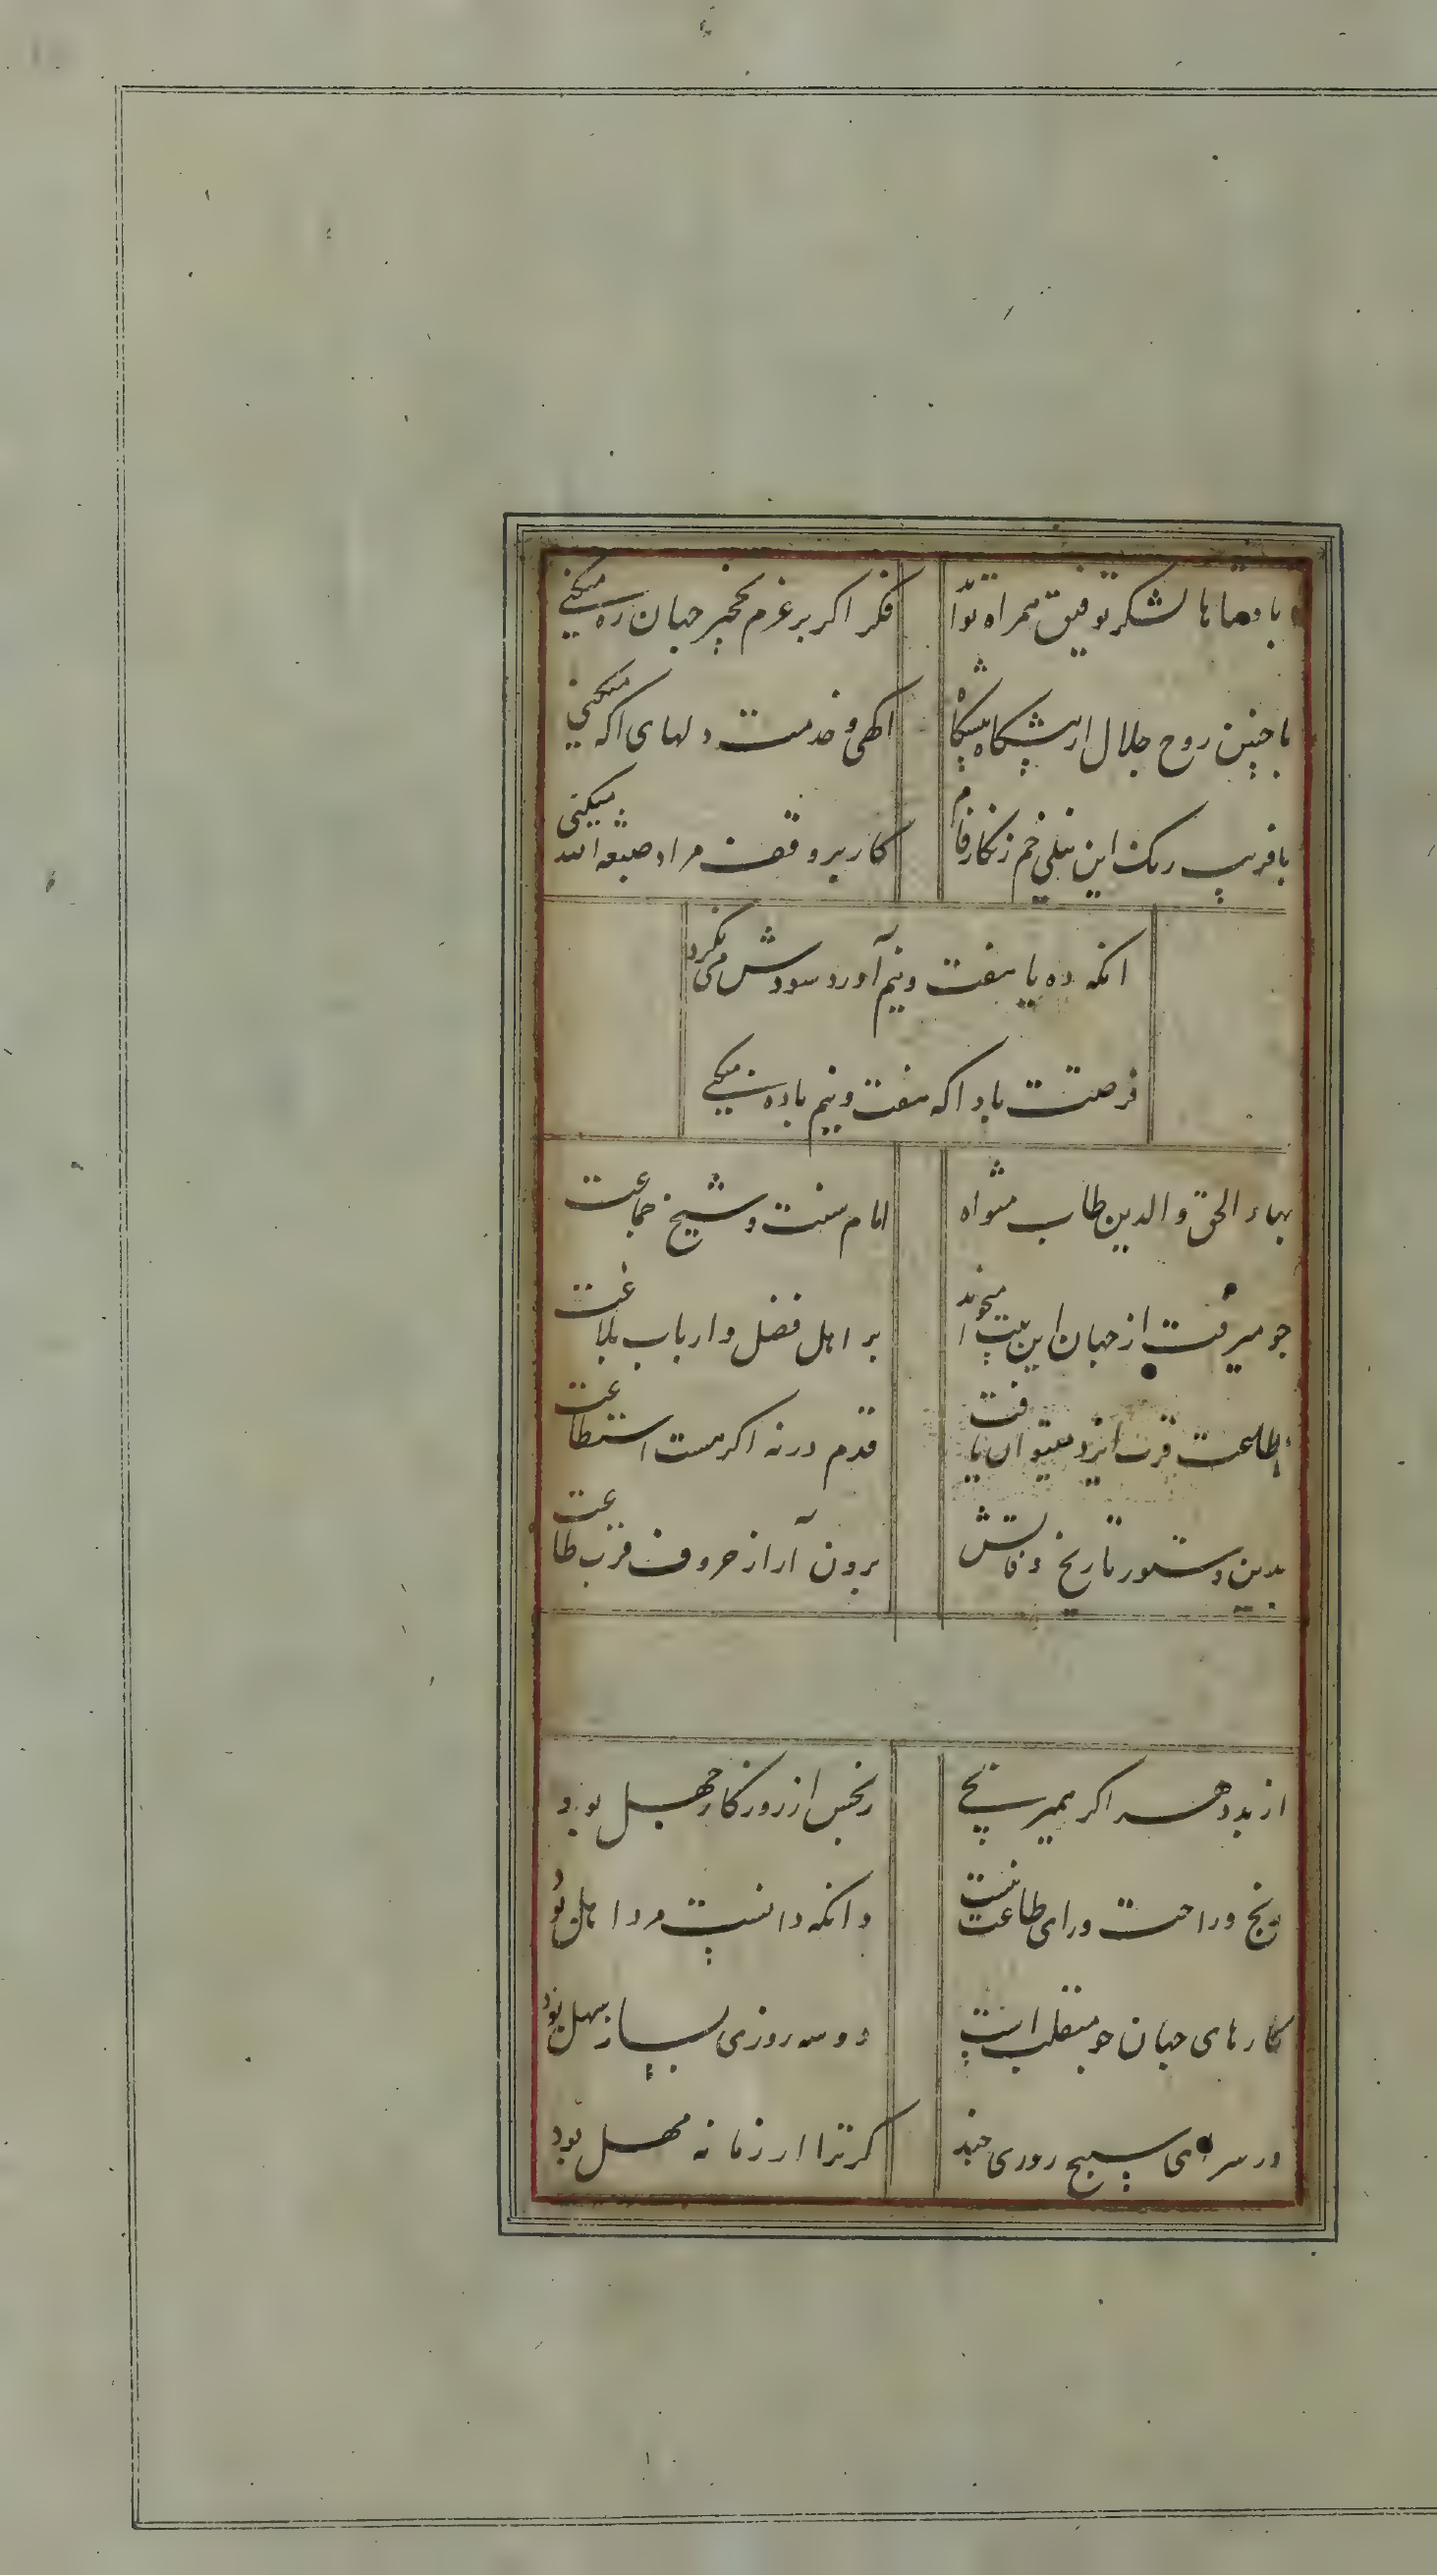 پادشاها لشکر توفیق همراه تواند
فکر اگر بر عزم نخجیر جهان ره میکنی
با چنین روح جلال از پیشگاه
آگهی و خدمت دلهای آگه میکنی
با فریب رنگ این نیلی خم زنگارفام
کار بر وفق مراد صبغة الله میکنی
انکه ده با هفت ونیم آورد سودش می نکرد
فرصتت بادا که هفت ونیم با ده میکنی
بهاء الحق والدین طاب مثواه
امام سنت و شیخ جماعت
چو میرفت از جهان این بیت میخواند
بر اهل فضل وارباب بلاغت
بطاعت قرب ایزد میتوان یافت
قدم در نه اگر هست استطاعت
بدین دستور تاریخ وفاتش
برون آر از حروف قرب طاعت
از بد دهر اگر همی رنجی
رنجش از روزگار جهل بود
رنج و راحت ورای طاعت نیست
وانکه دانست مرد اهل بود
کارهای جهان چو منقلب است
دو سه روزی بساز سهل بود
در سرای سپنج روزی چند
گر ترا از زمانه مهل بود